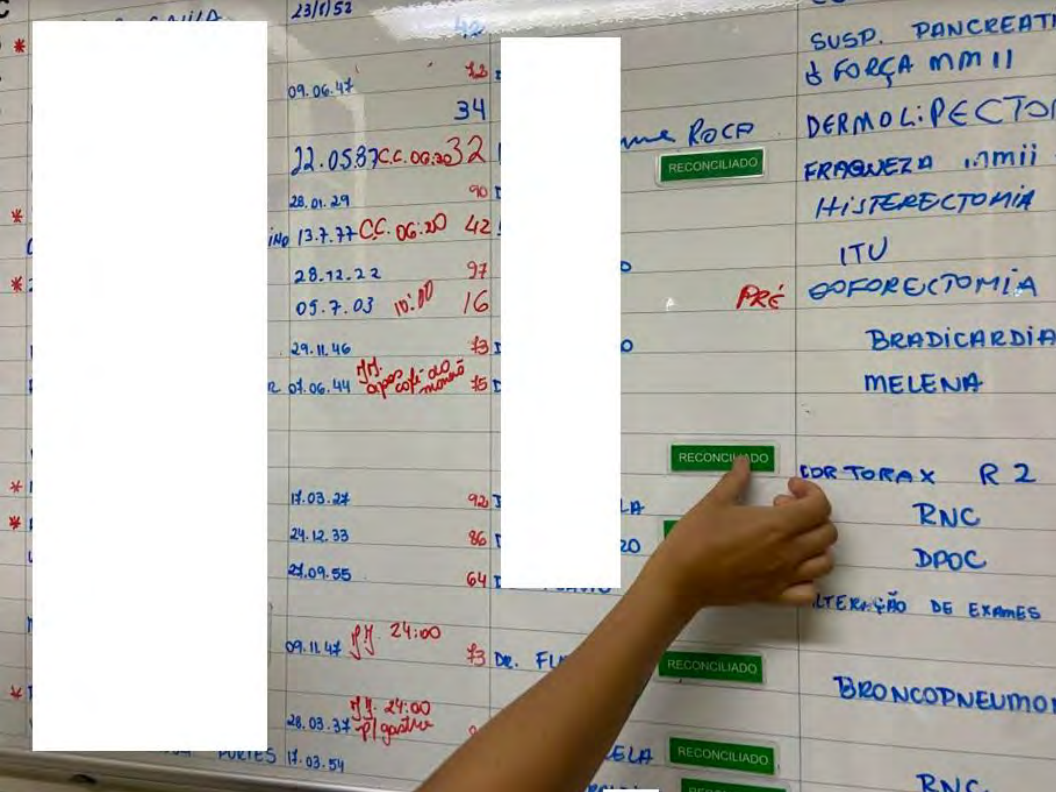 23/8/52
SUSP. PANCREATI
42
72
↓ FORÇA MM II
09.06.47
34
DERMOLIPECTO
ROCA
22.05.87 C.C. 06:30 32
RECONCILIADO
FRAQUEZA mmii
28.01.29 90
HISTERECTOMIA
13.7.77 C.C. 06:20 42
ITU
28.12.22 97
05.7.03 10:00 16 PRÉ OOFORECTOMIA
29.11.46 73 BRADICARDIA
07.06.44 após café da manhã 75 MELENA
RECONCILIADO
TORAX R 2
17.03.27 92 LA RNC
24.12.33 86 DPOC
64
ALTERAÇÃO DE EXAMES
09.11.47 JJ. 24:00 73 DR. FL
RECONCILIADO
BRONCOPNEUMO
28.03.37 JJ. 24:00
P/gastro
17.03.54 ELA RECONCILIADO
RNC